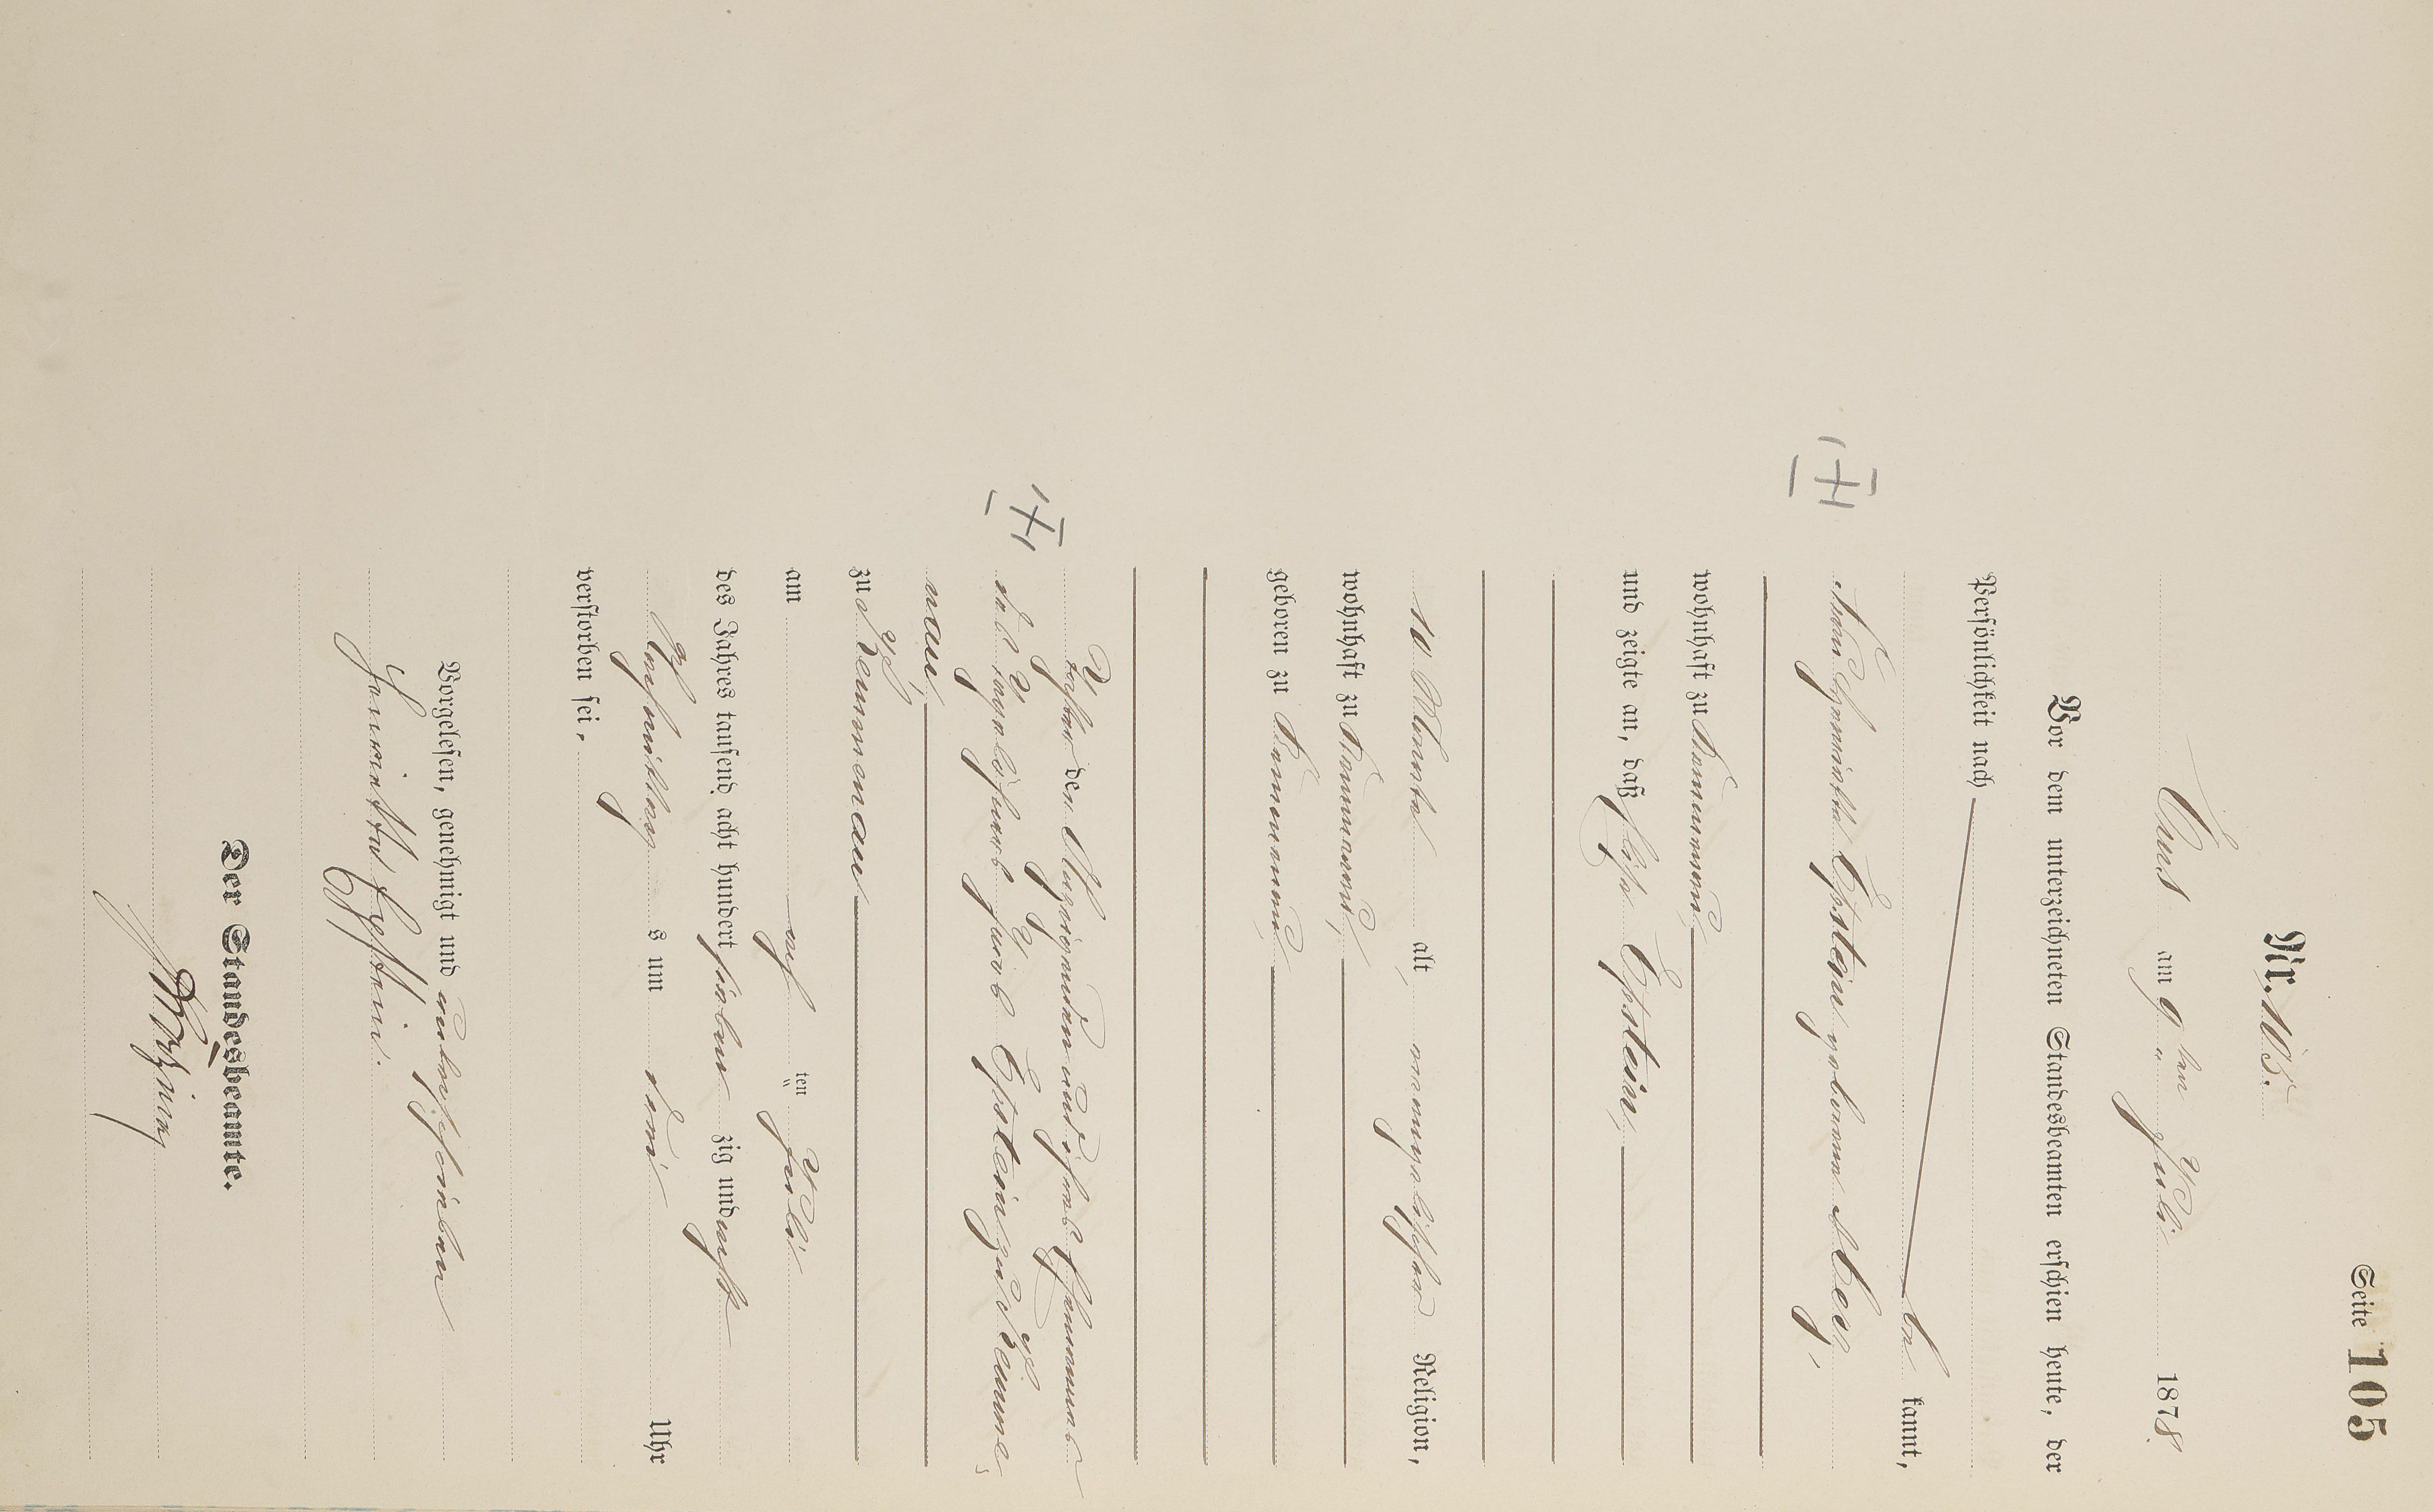 Seite 105
Nr. 105.
Ems am 9 ten Juli 1878
Vor dem unterzeichneten Standesbeamten erschien heute, der
Persönlichkeit nach
be kannt,
Henriette Epstein geborene May,
wohnhaft zu Kemmenau,
und zeigte an, daß Elise Epstein,
10 Monate alt, evangelischer Religion,
wohnhaft zu Kemmenau,
geboren zu Kemmenau,
Tochter der Anzeigenden und ihres Ehemannes
des Taglöhners Jacob Epstein zu Kemme¬
nau,
zu Kemmenau
am acht ten Juli
des Jahres tausend acht hundert sieben zig und acht
Nachmittags um drei Uhr
verstorben sei.
Vorgelesen, genehmigt und unterschrieben
Henriette Epstein.
Der Standesbeamte.